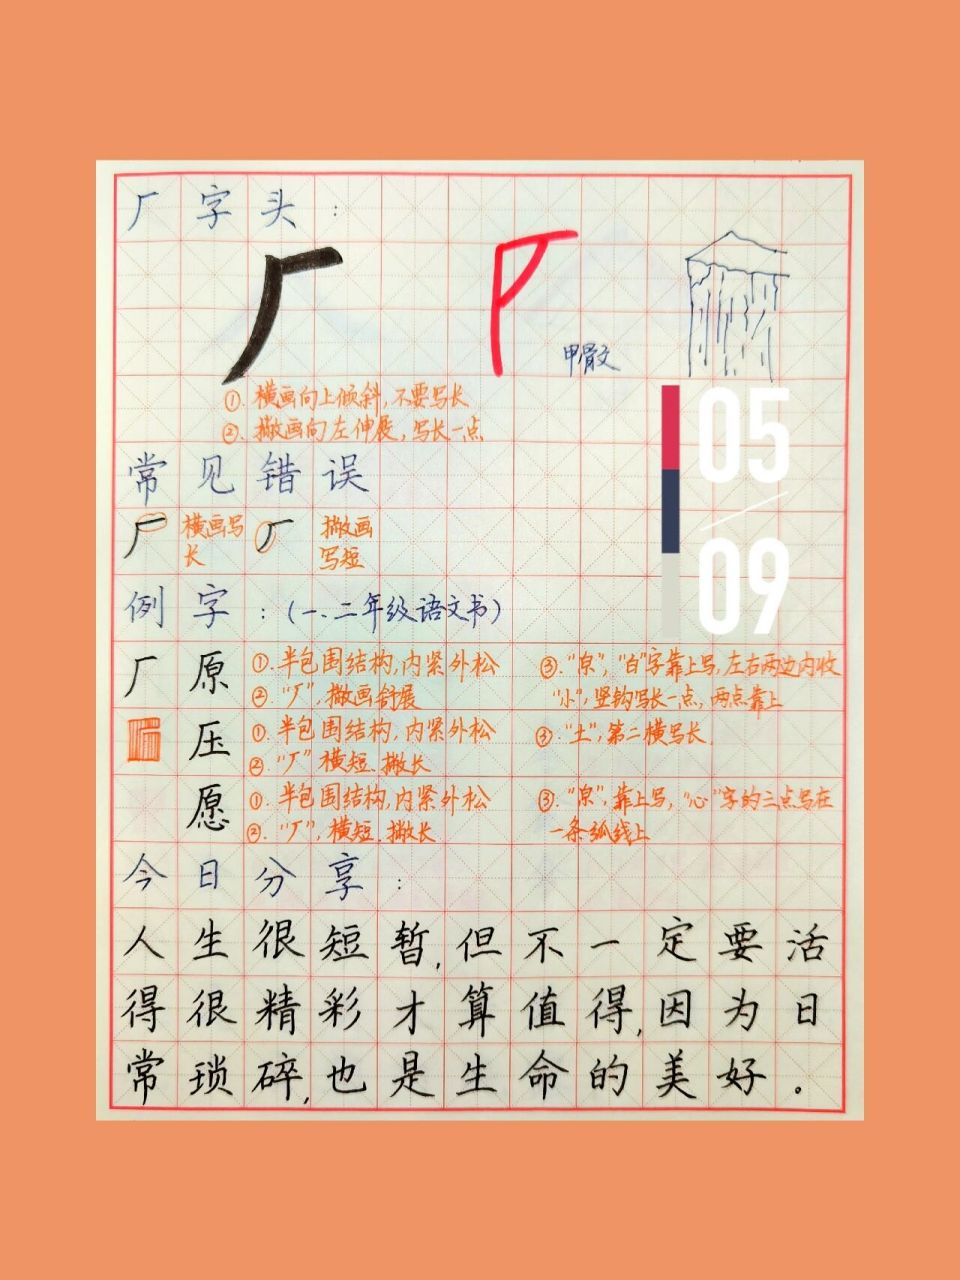 厂字头:
甲骨文
①.横画向上倾斜,不要写长
②.撇画向左伸展,写长一点
05
09
常见错误
厂 横画写长 厂 撇画写短
例字:(一、二年级语文书)
厂 原 ①.半包围结构,内紧外松 ③."泉","白"字靠上写,左右两边内收
②."厂",撇画舒展 "小",竖钩写长一点,两点靠上
压 ①.半包围结构,内紧外松 ③."土",第二横写长
②."厂"横短.撇长
愿 ①.半包围结构,内紧外松 ③."泉",靠上写,"心"字的三点写在
②."厂",横短.撇长 一条弧线上
今日分享:
人生很短暂,但不一定要活
得很精彩才算值得,因为日
常琐碎,也是生命的美好。